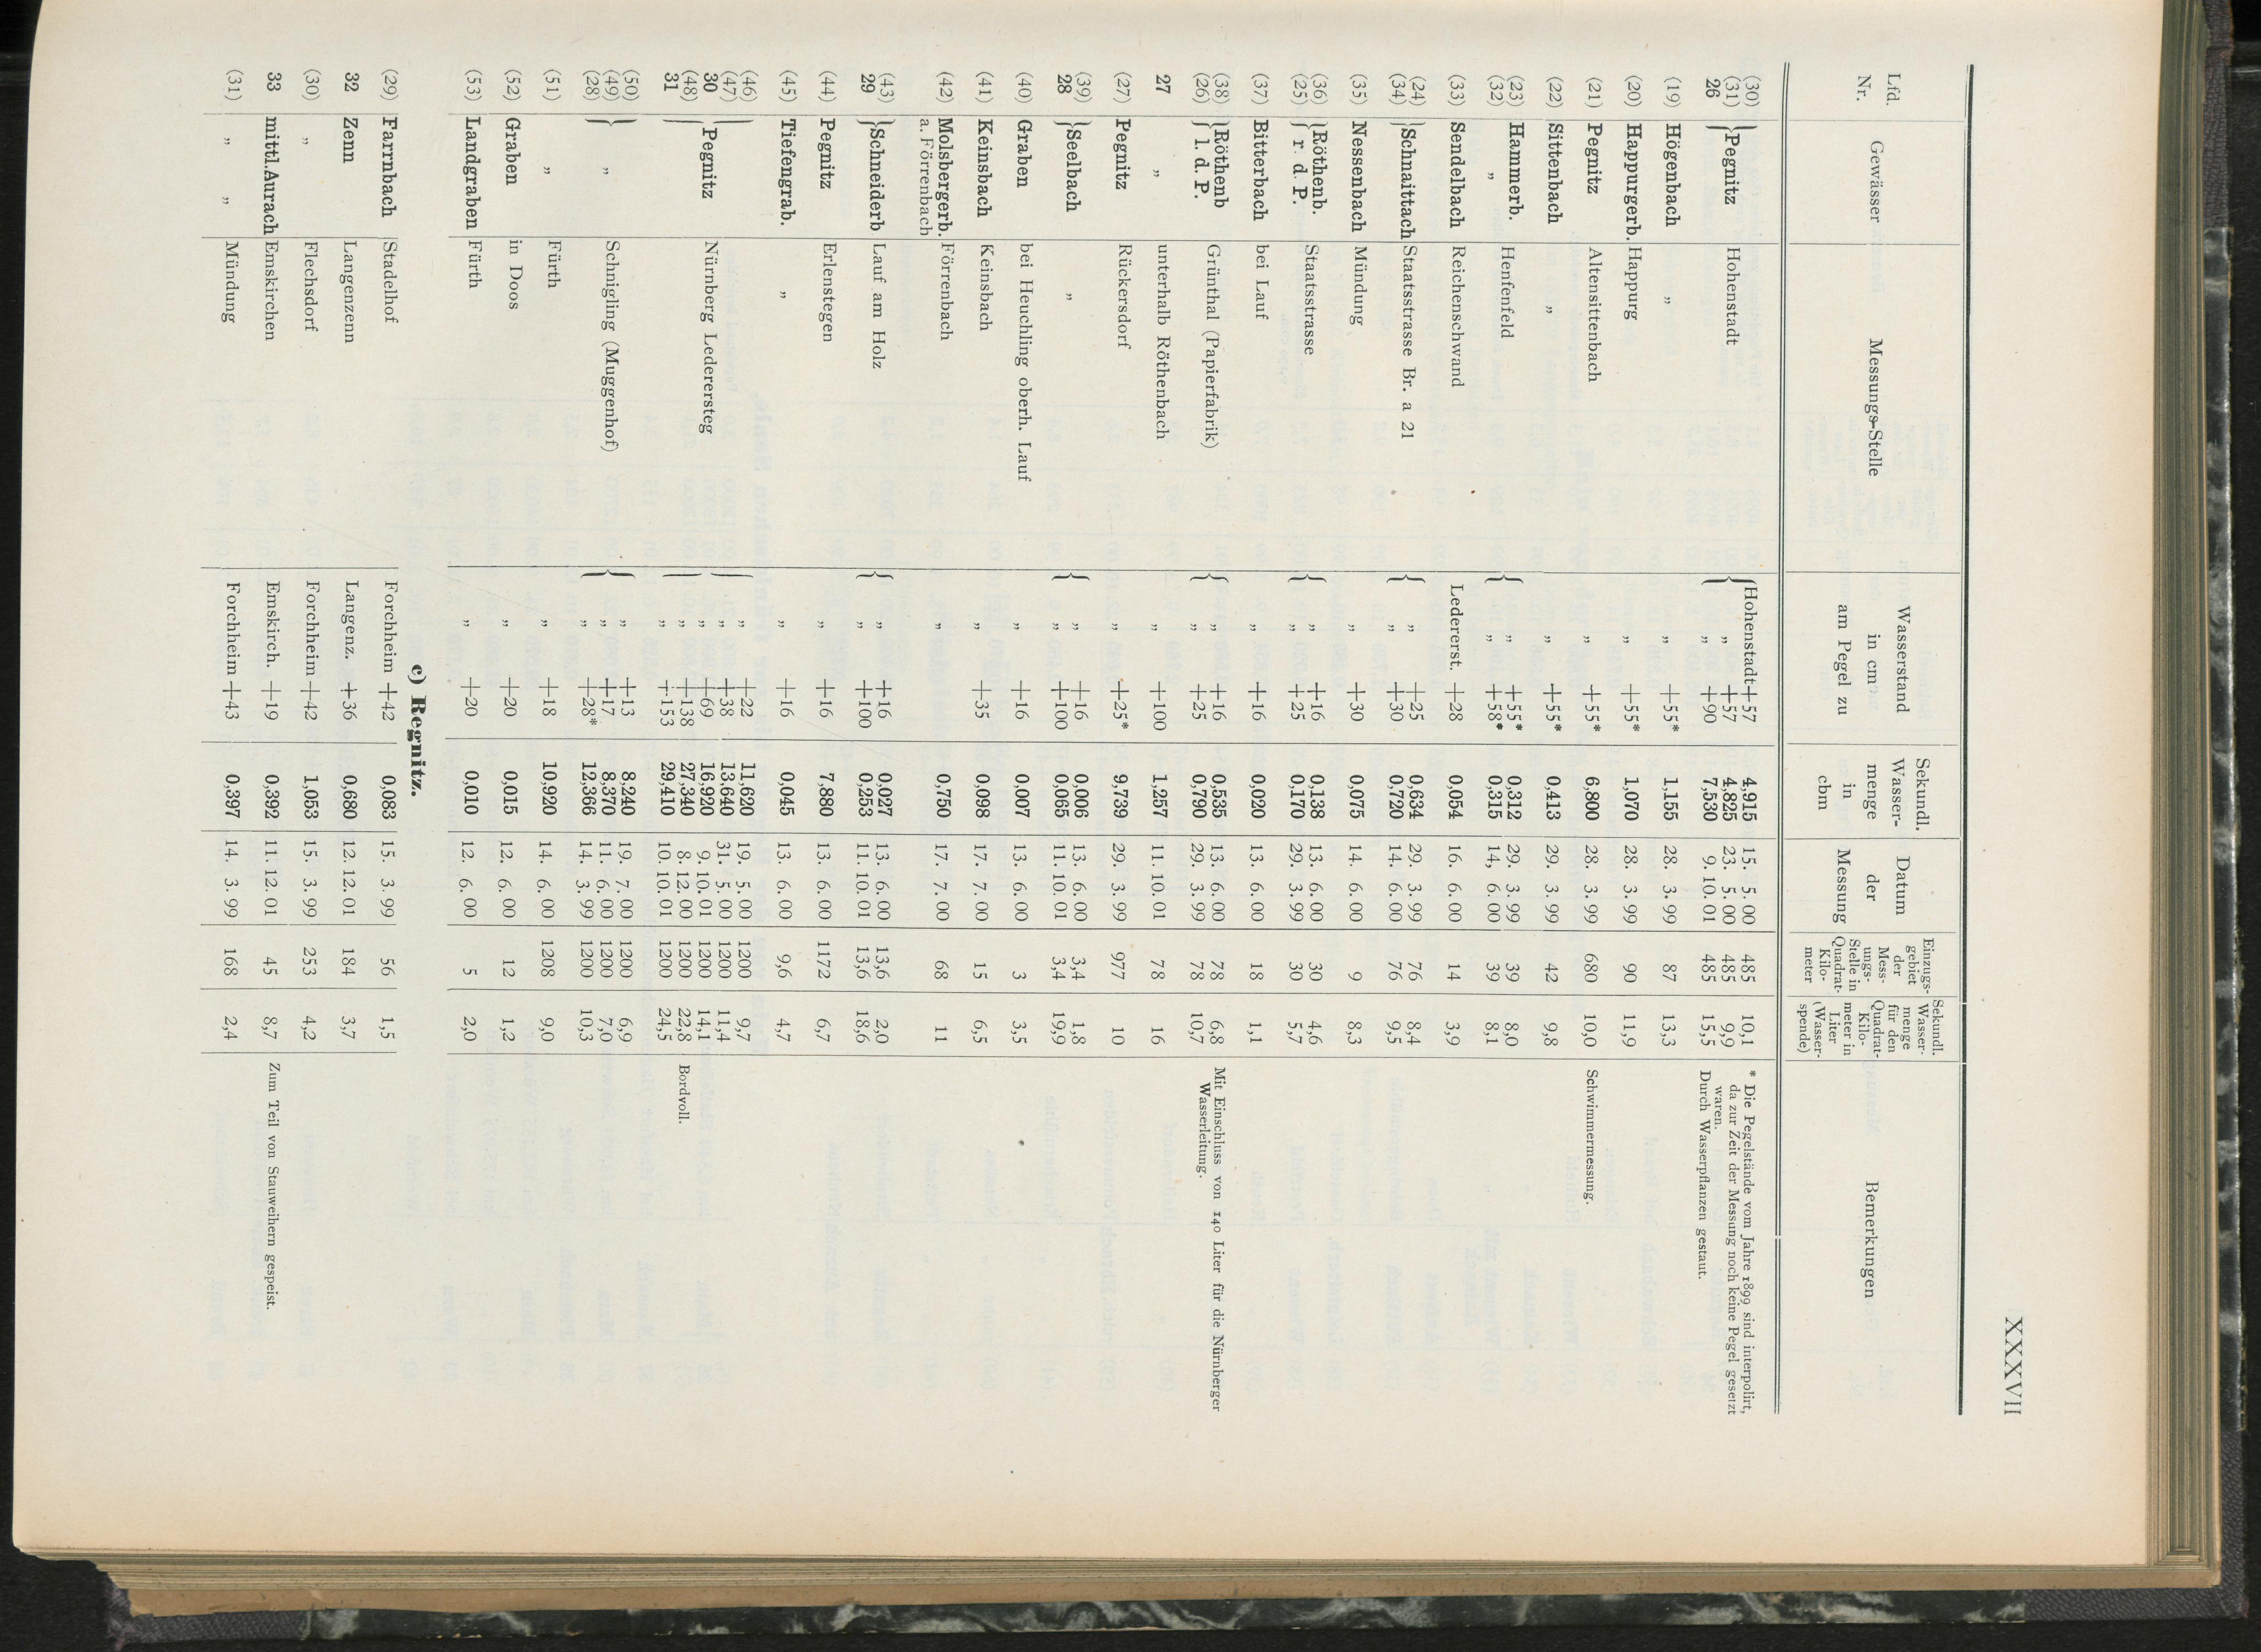 XXXVII
Lfd. Nr. Gewässer Messungs-Stelle Wasserstand in cm am Pegel zu Sekundl. Wasser- menge in cbm Datum der Messung Einzugs- gebiet der Mess- ungs- Stelle in Quadrat- Kilo- meter Sekundl. Wasser- menge für den Quadrat- Kilo- meter in Liter (Wasser- spende) Bemerkungen
(30) Pegnitz Hohenstadt Hohenstadt +57 4,915 15. 5. 00 485 10,1 * Die Pegelstände vom Jahre 1899 sind interpolirt,
(31) „ +57 4,825 23. 5. 00 485 9,9 da zur Zeit der Messung noch keine Pegel gesetzt waren.
26 „ +90 7,530 9. 10. 01 485 15,5 Durch Wasserpflanzen gestaut.
(19) Högenbach „ „ +55* 1,155 28. 3. 99 87 13,3
(20) Happurgerb. Happurg „ +55* 1,070 28. 3. 99 90 11,9
(21) Pegnitz Altensittenbach „ +55* 6,800 28. 3. 99 680 10,0 Schwimmermessung.
(22) Sittenbach „ „ +55* 0,413 29. 3. 99 42 9,8
(23) Hammerb. Henfenfeld „ +55* 0,312 29. 3. 99 39 8,0
(32) „ „ +58* 0,315 14, 6. 00 39 8,1
(33) Sendelbach Reichenschwand Ledererst. +28 0,054 16. 6. 00 14 3,9
(24) Schnaittach Staatsstrasse Br. a 21 „ +25 0,634 29. 3. 99 76 8,4
(34) „ +30 0,720 14. 6. 00 76 9,5
(35) Nessenbach Mündung „ +30 0,075 14. 6. 00 9 8,3
(36) Röthenb. Staatsstrasse „ +16 0,138 13. 6. 00 30 4,6
(25) r. d. P. „ +25 0,170 29. 3. 99 30 5,7
(37) Bitterbach bei Lauf „ +16 0,020 13. 6. 00 18 1,1
(38) Röthenb Grünthal (Papierfabrik) „ +16 0,535 13. 6. 00 78 6,8 Mit Einschluss von 140 Liter für die Nürnberger
(26) l. d. P. „ +25 0,790 29. 3. 99 78 10,7 Wasserleitung.
27 „ unterhalb Röthenbach „ +100 1,257 11. 10. 01 78 16
(27) Pegnitz Rückersdorf „ +25* 9,739 29. 3. 99 977 10
(39) Seelbach „ „ +16 0,006 13. 6. 00 3,4 1,8
28 „ +100 0,065 11. 10. 01 3,4 19,9
(40) Graben bei Heuchling oberh. Lauf „ +16 0,007 13. 6. 00 3 3,5
(41) Keinsbach Keinsbach „ +35 0,098 17. 7. 00 15 6,5
(42) Molsbergerb. Förrenbach „ 0,750 17. 7. 00 68 11
a. Förrenbach
(43) Schneiderb Lauf am Holz „ +16 0,027 13. 6. 00 13,6 2,0
29 „ +100 0,253 11. 10. 01 13,6 18,6
(44) Pegnitz Erlenstegen „ +16 7,880 13. 6. 00 1172 6,7
(45) Tiefengrab. „ „ +16 0,045 13. 6. 00 9,6 4,7
(46) „ +22 11,620 19. 5. 00 1200 9,7
(47) „ +38 13.640 31. 5. 00 1200 11,4
30 Pegnitz Nürnberg Lederersteg „ +69 16,920 9. 10. 01 1200 14,1
(48) „ +138 27,340 8. 12. 00 1200 22,8 Bordvoll.
31 „ +153 29,410 10. 10. 01 1200 24,5
(50) „ +13 8,240 19. 7. 00 1200 6,9
(49) „ Schnigling (Muggenhof) „ +17 8,370 11. 6. 00 1200 7,0
(28) „ +28* 12,366 14. 3. 99 1200 10,3
(51) „ Fürth „ +18 10,920 14. 6. 00 1208 9,0
(52) Graben in Doos „ +20 0,015 12. 6. 00 12 1,2
(53) Landgraben Fürth „ +20 0,010 12. 6. 00 5 2,0
c) Regnitz.
(29) Farrnbach Stadelhof Forchheim +42 0,083 15. 3. 99 56 1,5
32 Zenn Langenzenn Langenz. +36 0,680 12. 12. 01 184 3,7
(30) „ Flechsdorf Forchheim +42 1,053 15. 3. 99 253 4,2
33 mittl. Aurach Emskirchen Emskirch. +19 0,392 11. 12. 01 45 8,7 Zum Teil von Stauweihern gespeist.
(31) „ „ Mündung Forchheim +43 0,397 14. 3. 99 168 2,4